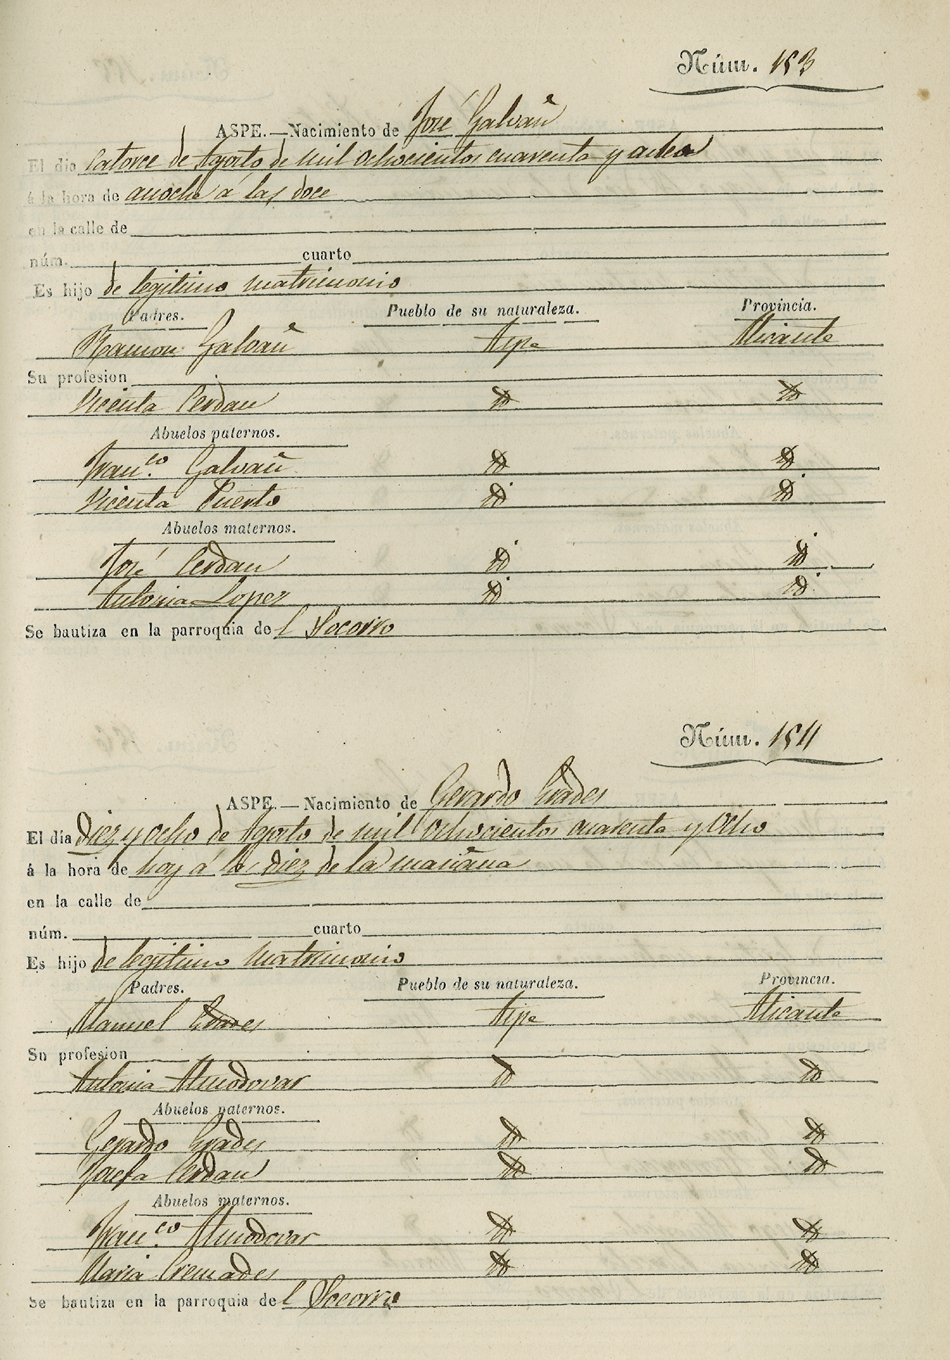 Núm. 153
ASPE.—Nacimiento de José Galvañ
El dia catorce de Agosto de mil ochocientos cuarenta y ocho
á la hora de anoche á las doce
en la calle de
núm. cuarto
Es hijo de legitimo matrimonio
Padres. Pueblo de su naturaleza. Provincia.
Ramon Galvañ Aspe Alicante
Su profesion
Vicenta Cerdan do do
Abuelos paternos.
Fran.co Galvañ do do
Vicenta Puerto do do
Abuelos maternos.
José Cerdan do do
Antonia Lopez do do
Se bautiza en la parroquia del Socorro
Núm. 154
ASPE.—Nacimiento de Gerardo Prades
El día Diez y ocho de Agosto de mil Ochocientos cuarenta y Ocho
á la hora de hoy á las diez de la mañana
en la calle de
núm. cuarto
Es hijo de legitimo Matrimonio
Padres. Pueblo de su naturaleza. Provincia.
Manuel Prades Aspe Alicante
Su profesion
Antonia Almodovar do do
Abuelos paternos.
Gerardo Prades do do
Josefa Cerdan do do
Abuelos maternos.
Fran.co Almodovar do do
Maria Cremades do do
Se bautiza en la parroquia del Socorro